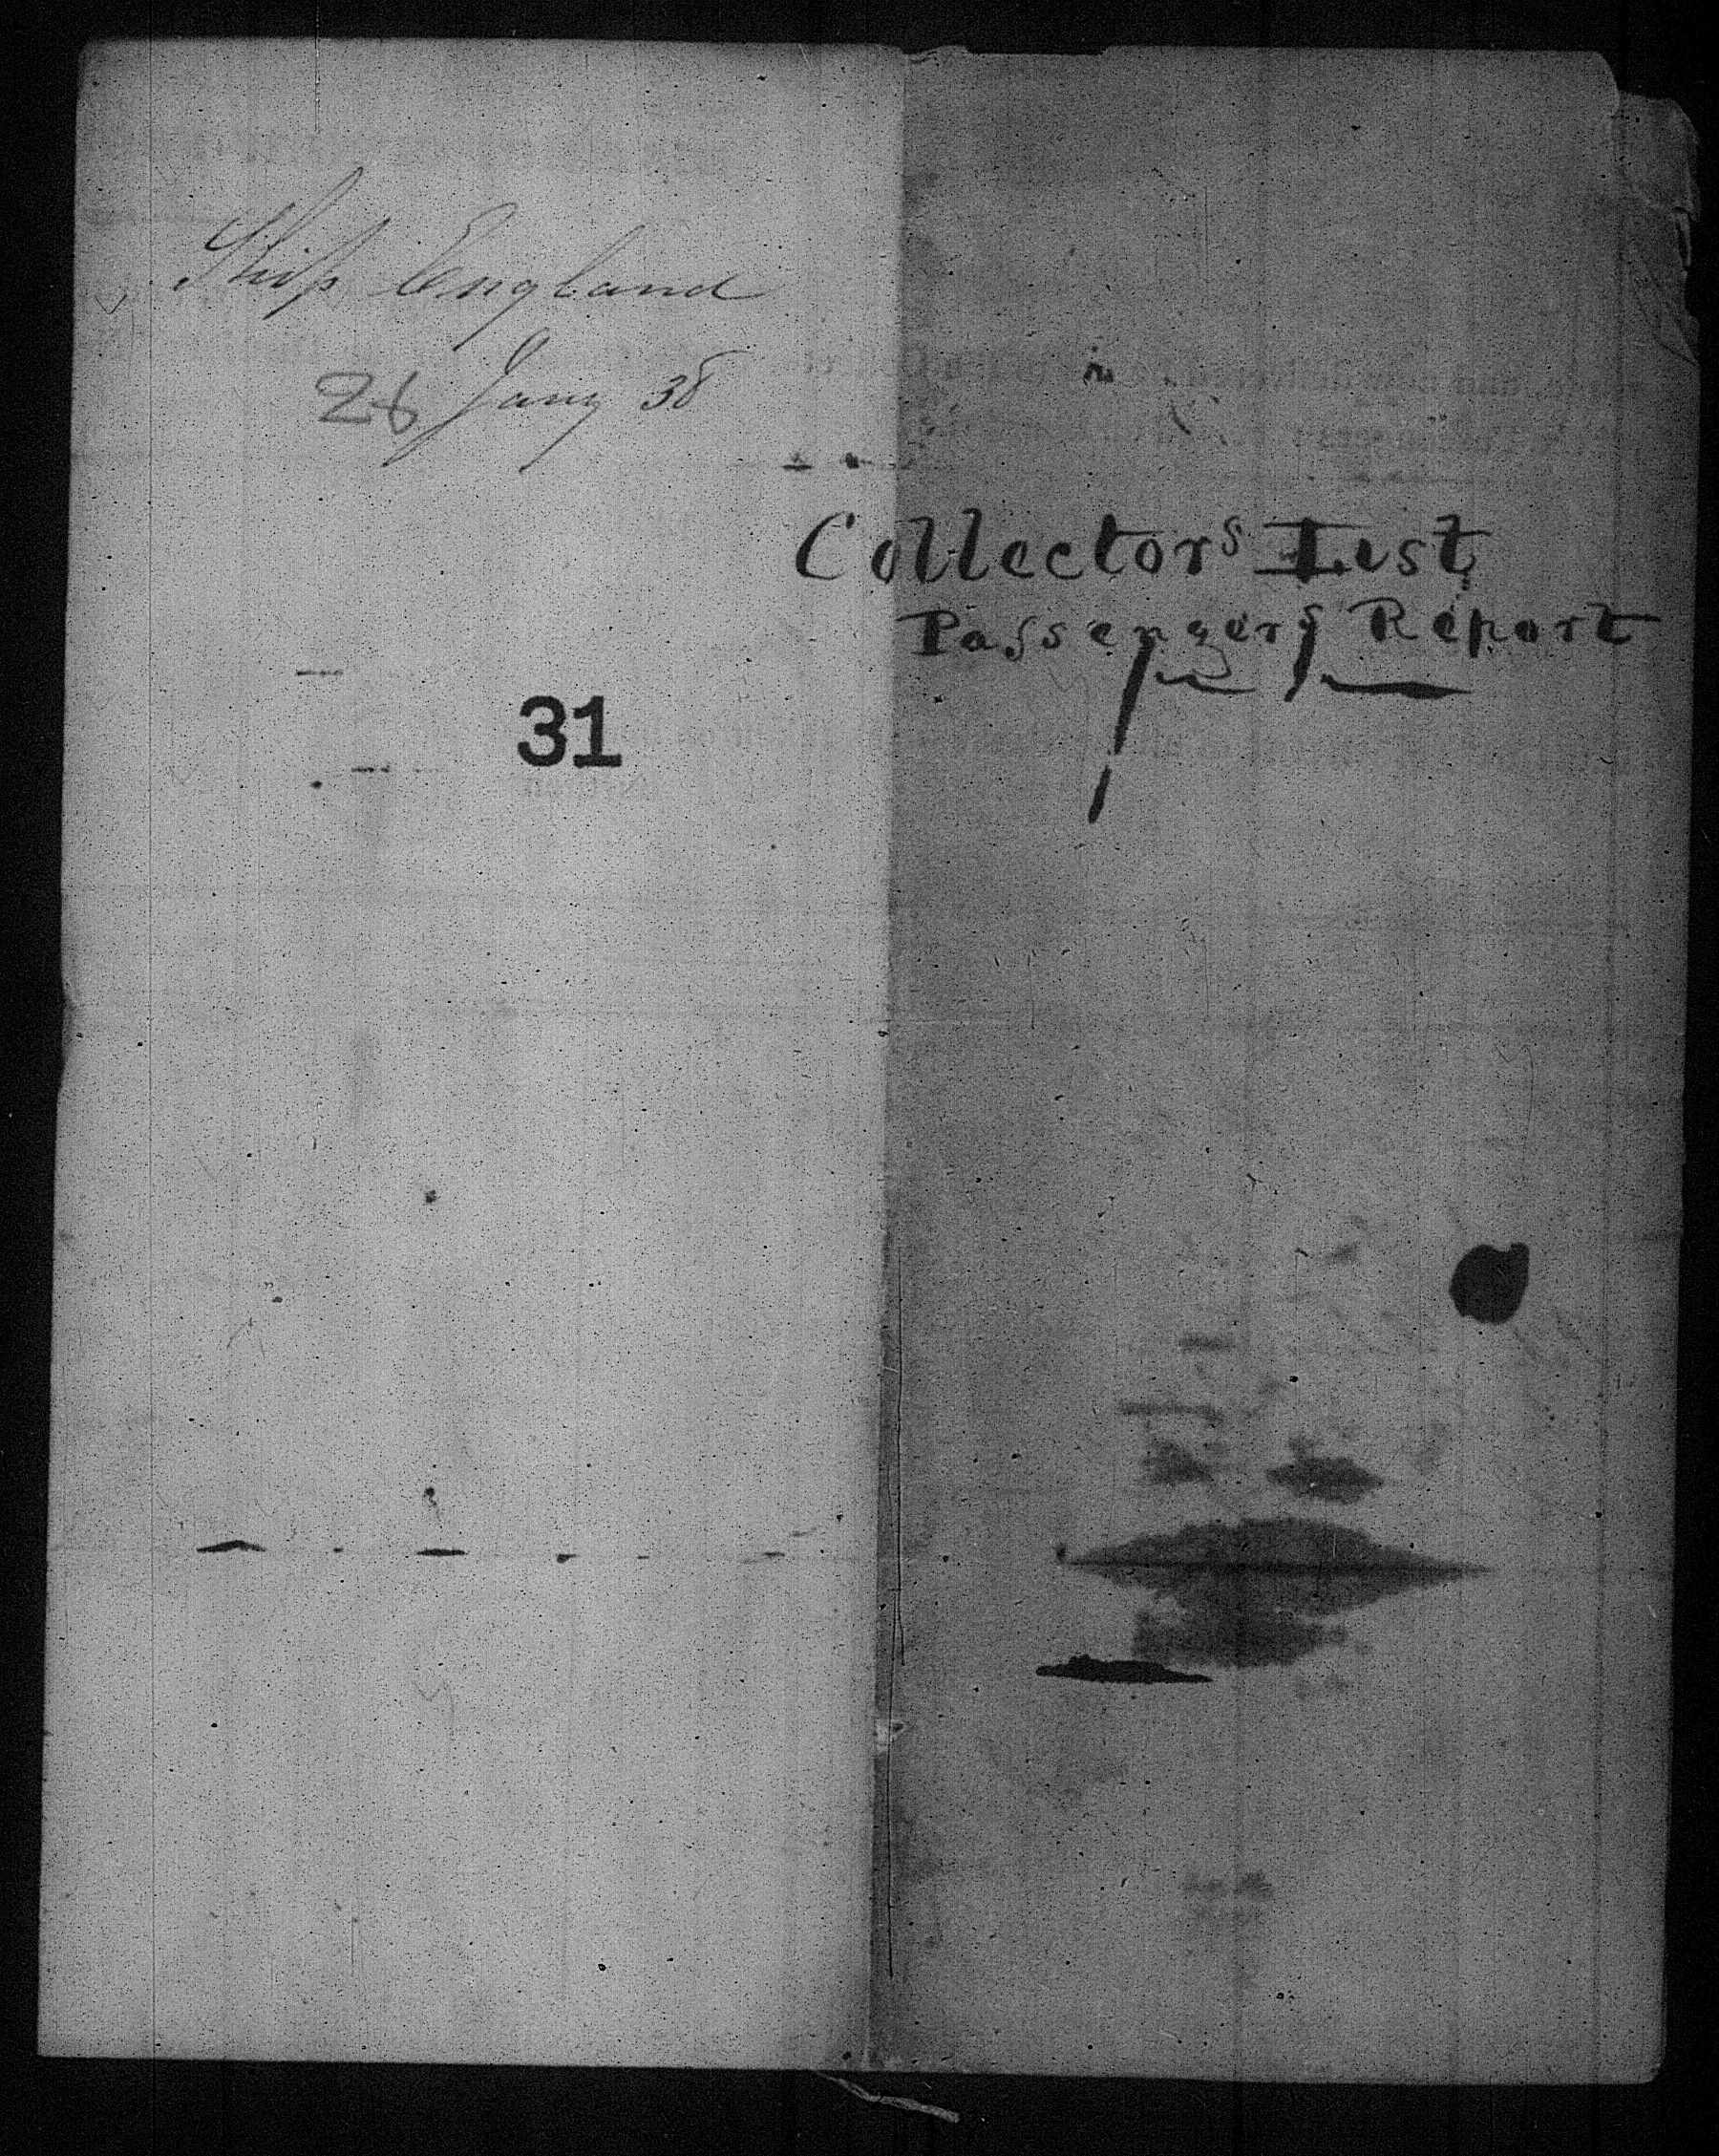 Ship England
26 Jany 38
31
Collectors List
Passengers Report